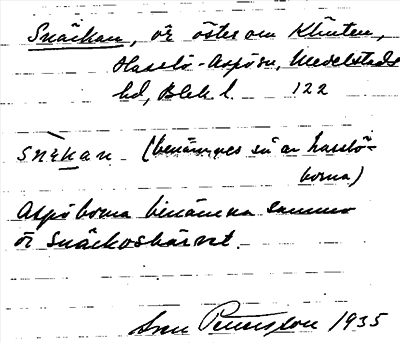 Snäckan, ör öster om Klinten,
Hasslö-Aspösu, Medelstads
hd, Blek l. 122
snɛ̀kan (benämnes så av hasslö-
borna)
Aspöborna benämna samma
ör Snäckoskäret.
Sven Pettersson 1935